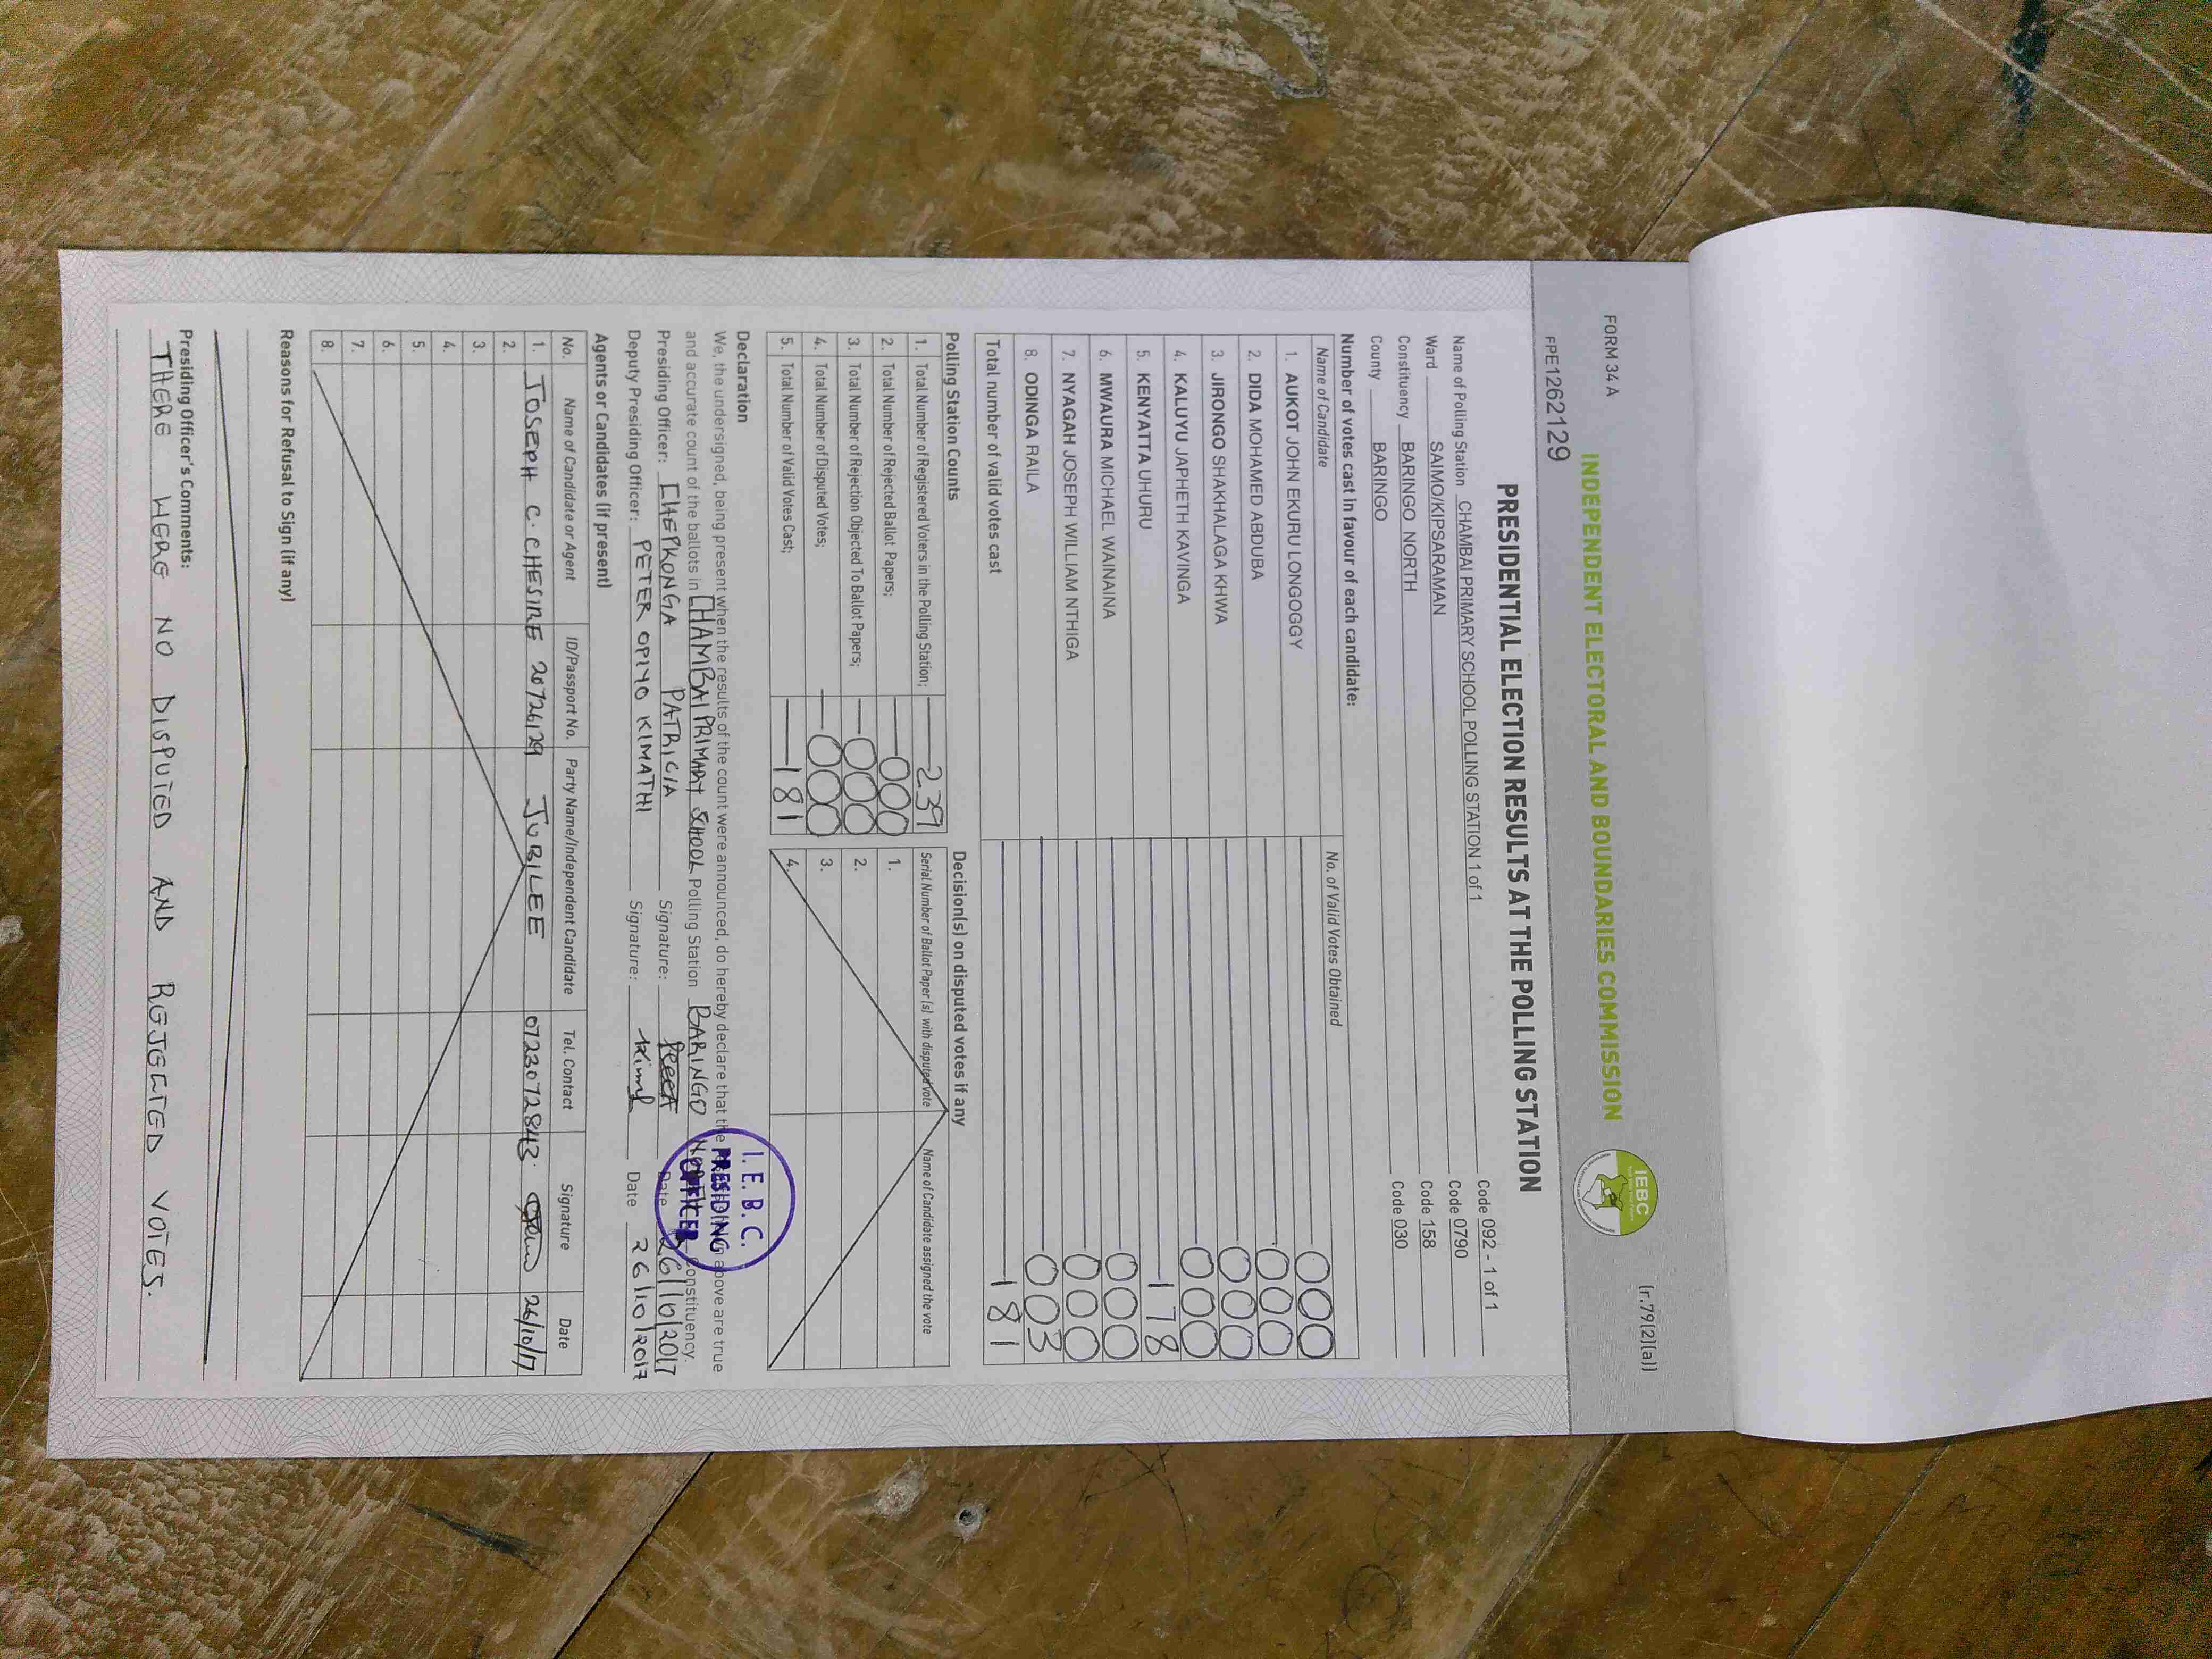 FORM 34 A
(r.79(2)(a))
INDEPENDENT ELECTORAL AND BOUNDARIES COMMISSION
IEBC
FPE1262129
PRESIDENTIAL ELECTION RESULTS AT THE POLLING STATION
Name of Polling Station CHAMBAI PRIMARY SCHOOL POLLING STATION 1 of 1 Code 092 - 1 of 1
Ward SAIMO/KIPSARAMAN Code 0790
Constituency BARINGO NORTH Code 158
County BARINGO Code 030
Number of votes cast in favour of each candidate:
Name of Candidate No. of Valid Votes Obtained
1. AUKOT JOHN EKURU LONGOGGY 000
2. DIDA MOHAMED ABDUBA 000
3. JIRONGO SHAKHALAGA KHWA 000
4. KALUYU JAPHETH KAVINGA 000
5. KENYATTA UHURU 178
6. MWAURA MICHAEL WAINAINA 000
7. NYAGAH JOSEPH WILLIAM NTHIGA 000
8. ODINGA RAILA 003
Total number of valid votes cast 181
Polling Station Counts
1. Total Number of Registered Voters in the Polling Station; 239
2. Total Number of Rejected Ballot Papers; 000
3. Total Number of Rejection Objected To Ballot Papers; 000
4. Total Number of Disputed Votes; 000
5. Total Number of Valid Votes Cast; 181
Decision(s) on disputed votes if any
Serial Number of Ballot Paper (s) with disputed vote Name of Candidate assigned the vote
1.
2.
3.
4.
Declaration
We, the undersigned, being present when the results of the count were announced, do hereby declare that the above are true
and accurate count of the ballots in CHAMBAI PRIMARY SCHOOL Polling Station BARINGO NORTH Constituency.
Presiding Officer: CHEPKONGA PATRICIA Signature: Date 26/10/2017
Deputy Presiding Officer: PETER OPIYO KIMATHI Signature: Date 26/10/2017
I.E.B.C.
PRESIDING
OFFICER
Agents or Candidates (if present)
No. Name of Candidate or Agent ID/Passport No. Party Name/Independent Candidate Tel. Contact Signature Date
1. JOSEPH C. CHESIRE 20726129 JUBILEE 0723072843 26/10/17
2.
3.
4.
5.
6.
7.
8.
Reasons for Refusal to Sign (if any)
Presiding Officer's Comments:
THERE WERE NO DISPUTED AND REJECTED VOTES.